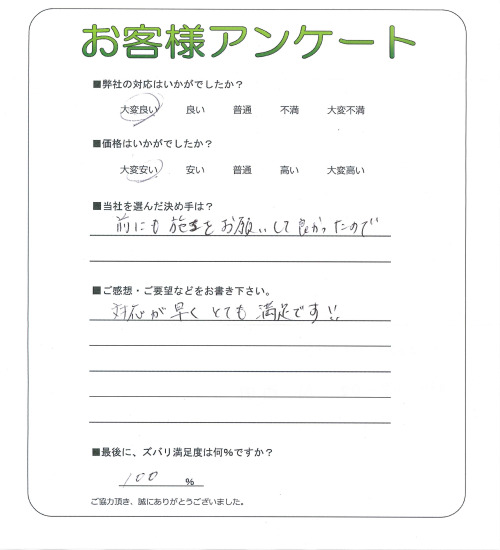 お客様アンケート
■弊社の対応はいかがでしたか?
大変良い 良い 普通 不満 大変不満
■価格はいかがでしたか?
大変安い 安い 普通 高い 大変高い
■当社を選んだ決め手は?
前にも施工をお願いして良かったので
■ご感想・ご要望などをお書き下さい。
対応が早くとても満足です!!
■最後に、ズバリ満足度は何%ですか?
100 %
ご協力頂き、誠にありがとうございました。